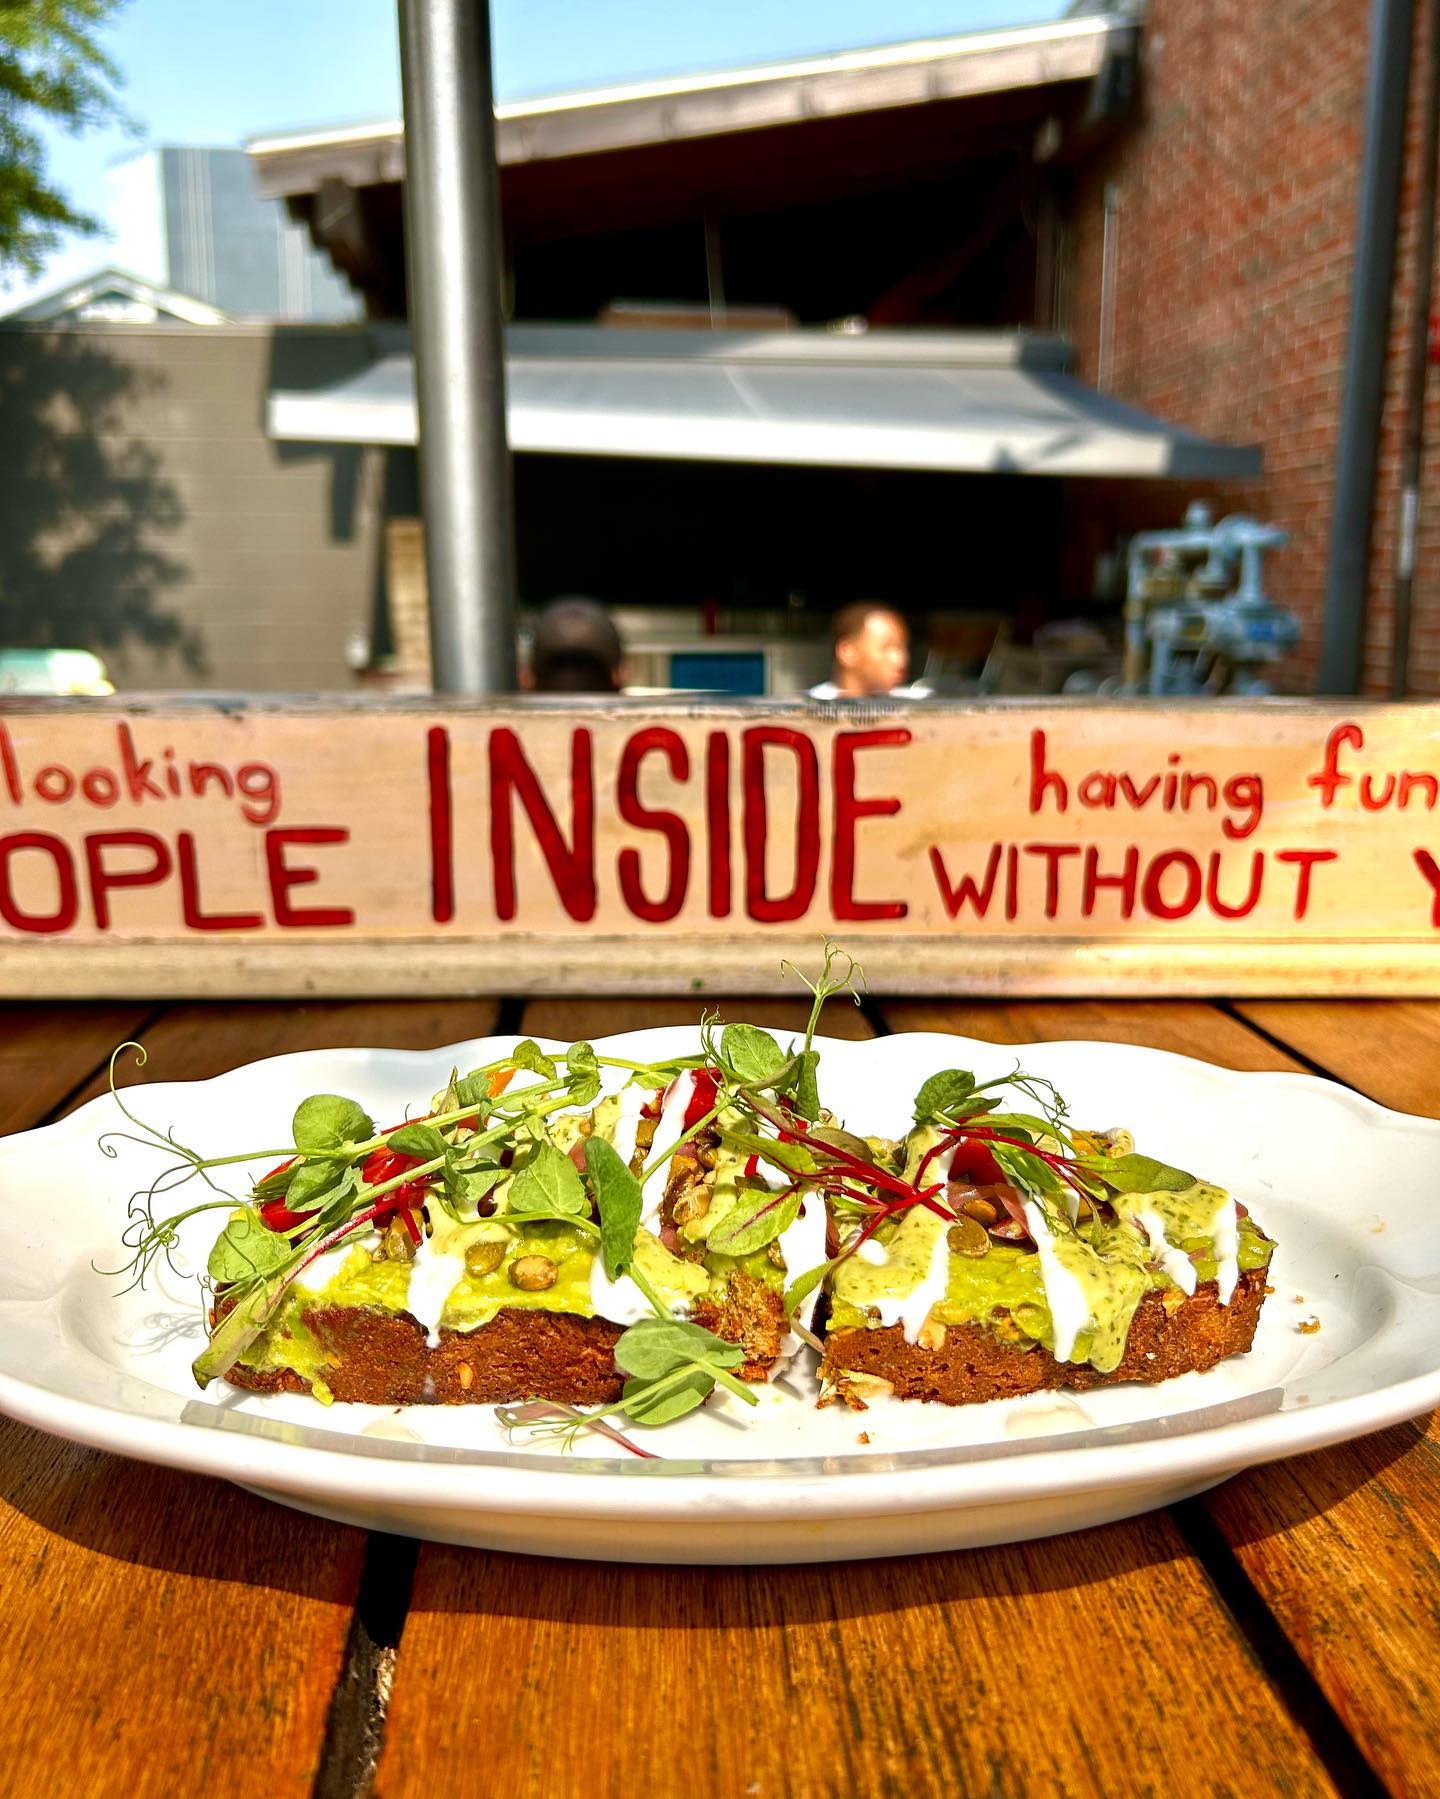 looking
OPLE INSIDE having fun
WITHOUT Y